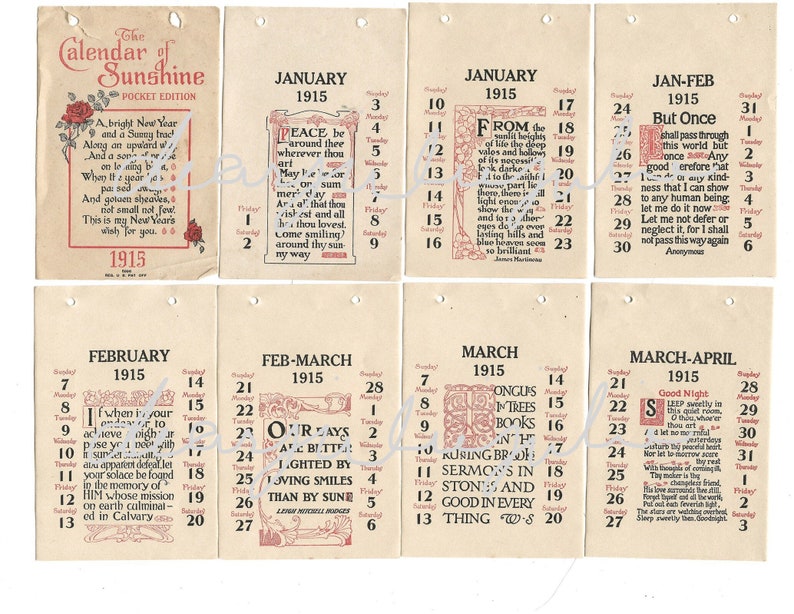 The
Calendar of
Sunshine
POCKET EDITION
A, bright New Year
and a Sunny trac
Along an upward wa
And a song of praise
on looking back,
When the year has
passed away,
And golden sheaves,
not small not few.
This is my New Year's
wish for you.
1915
REG. U.S. PAT. OFF.
JANUARY
1915
Friday
1
Saturday
2
PEACE be
around thee
wherever thou
art
May life be for
one sum
mer's day
And all that thou
wishest and all
that thou lovest.
Come smiling
around thy sun-
ny way
Sunday
3
Monday
4
Tuesday
5
Wednesday
6
Thursday
7
Friday
8
Saturday
9
JANUARY
1915
Sunday
10
Monday
11
Tuesday
12
Wednesday
13
Thursday
14
Friday
15
Saturday
16
FROM the
sunlit heights
of life the deep
vales and hollows
of its necessities
look darker
to the faithful
whose part lies
there, there is still
light enough
show the way
and to no other
eyes do the ever-
lasting hills and
blue heaven seem
so brilliant
James Martineau
Sunday
17
Monday
18
Tuesday
19
Wednesday
20
Thursday
21
Friday
22
Saturday
23
JAN-FEB
1915
Sunday
24
Monday
25
Tuesday
26
Wednesday
27
Thursday
28
Friday
29
Saturday
30
But Once
I shall pass through
this world but
once Any
good therefore that
I can do or any kind-
ness that I can show
to any human being
let me do it now
Let me not defer or
neglect it, for I shall
not pass this way again
Anonymous
Sunday
31
Monday
1
Tuesday
2
Wednesday
3
Thursday
4
Friday
5
Saturday
6
FEBRUARY
1915
Sunday
7
Monday
8
Tuesday
9
Wednesday
10
Thursday
11
Friday
12
Saturday
13
If when in your
endeavor to
achieve a high pur
pose you meet with
misunderstanding
and apparent defeat, let
your solace be found
in the memory of
HIM whose mission
on earth culminat-
ed in Calvary
Sunday
14
Monday
15
Tuesday
16
Wednesday
17
Thursday
18
Friday
19
Saturday
20
FEB-MARCH
1915
Sunday
21
Monday
22
Tuesday
23
Wednesday
24
Thursday
25
Friday
26
Saturday
27
OUR DAYS
ARE BETTER
LIGHTED BY
LOVING SMILES
THAN BY SUN
LEIGH MITCHELL HODGES
Sunday
28
Monday
1
Tuesday
2
Wednesday
3
Thursday
4
Friday
5
Saturday
6
MARCH
1915
Sunday
7
Monday
8
Tuesday
9
Wednesday
10
Thursday
11
Friday
12
Saturday
13
TONGUES
IN TREES
BOOKS
IN THE
RUNING BROOKS
SERMONS IN
STONES AND
GOOD IN EVERY
THING W-S
Sunday
14
Monday
15
Tuesday
16
Wednesday
17
Thursday
18
Friday
19
Saturday
20
MARCH-APRIL
1915
Sunday
21
Monday
22
Tuesday
23
Wednesday
24
Thursday
25
Friday
26
Saturday
27
Good Night
SLEEP sweetly in
this quiet room,
O thou, whoe'er
thou art
And let no mournful
yesterdays
Disturb thy peaceful heart
Nor let to-morrow scare
thy rest
With thoughts of coming ill;
Thy maker is thy
changeless friend,
His love surrounds thee still.
Forget thyself and all the world;
Put out each feverish light,
The stars are watching overhead,
Sleep sweetly then. Goodnight.
Sunday
28
Monday
29
Tuesday
30
Wednesday
31
Thursday
1
Friday
2
Saturday
3